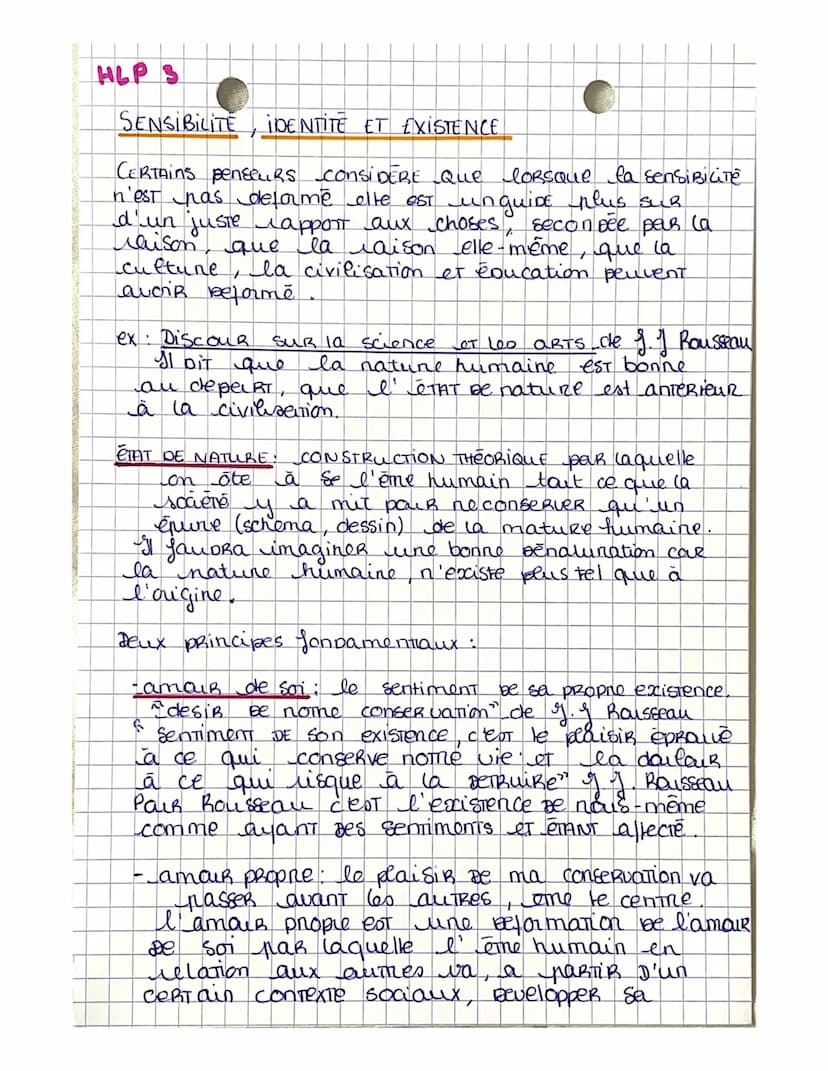 HLP 3
SENSIBILITÉ, IDENTITÉ ET EXISTENCE
CERTAINS penseurs CONSIDÈRE QUE LORSQUE la SENSIBILITÉ
n'EST pas deformé elle EST un guide plus sur
d'un juste rapport aux choses, secondée par la
raison, que la raison elle-même, que la
culture, la civilisation et éducation peuvent
avoir deformé.
ex : Discour sur la science et les arts de J.J Rousseau
Il dit que la nature humaine est bonne
au depart, que l'état de nature est anterieur
à la civilisation.
ÉTAT DE NATURE : CONSTRUCTION THÉORIQUE par laquelle
on ôte à l'être humain tout ce que la
société y a mit pour ne conserver qu'un
épure (schema, dessin) de la nature humaine.
Il faudra imaginer une bonne dénaturation car
la nature humaine, n'existe plus tel que à
l'origine.
Deux principes fondamentaux :
- amour de soi : le sentiment de sa propre existence.
"desir de notre conservation" de J.J Rousseau
" Sentiment de son existence, c'est le plaisir éprouvé
à ce qui conserve notre vie et la douleur
à ce qui risque à la detruire" J J. Rousseau
Pour Rousseau c'est l'existence de nous-même
comme ayant des sentiments et étant affecté.
- amour propre : le plaisir de ma conservation va
passer avant les autres, être le centre.
l'amour propre est une deformation de l'amour
de soi par laquelle l'être humain en
relation aux autres va, a partir d'un
certain contexte sociaux, developper sa